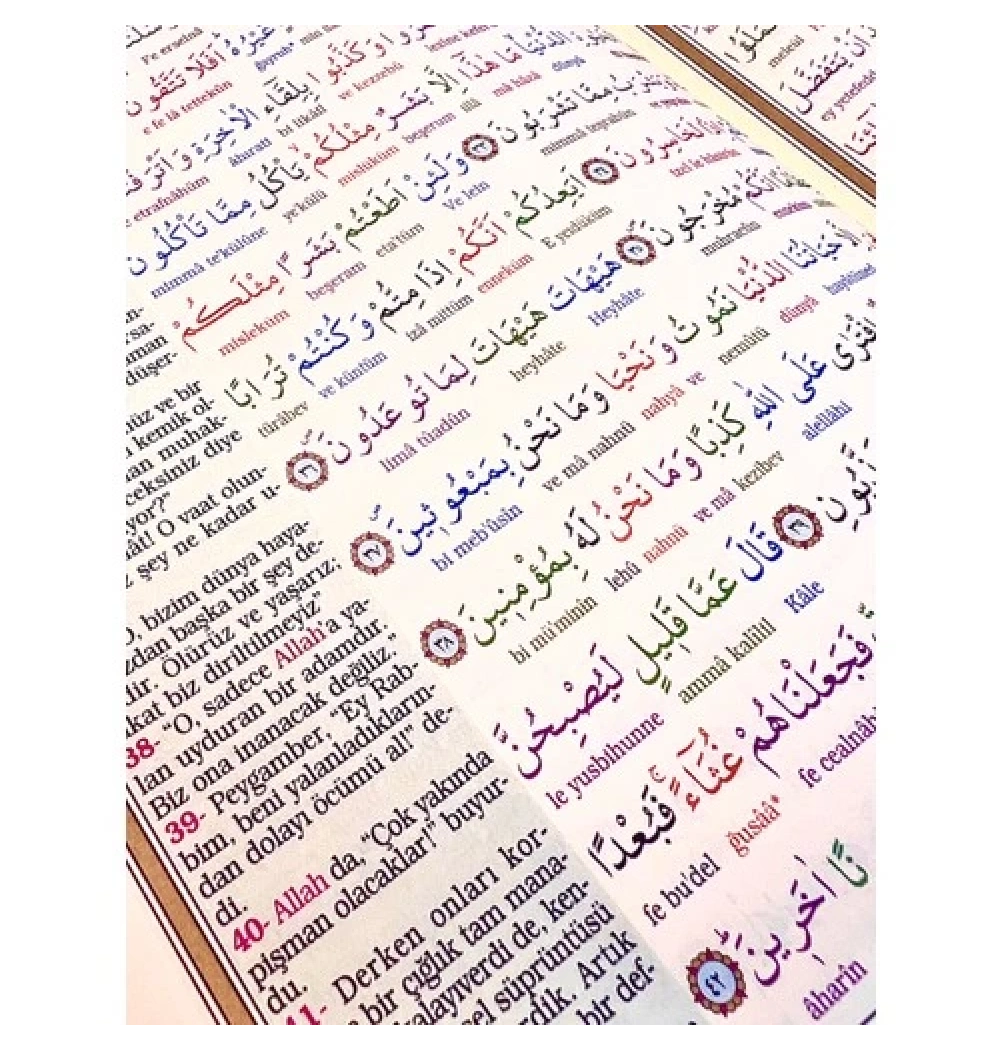 غَيْرُهُ اَفَلَا تَتَّقُونَ
e fe lâ tettekûn
وَ كَذَّبُوا بِلِقَٓاءِ الْاٰخِرَةِ وَ اَتْرَفْ
ve kezzebû bi likâi âhırati etrafnâhüm
الدُّنْيَا مَا هٰذَٓا اِلَّا بَشَرٌ مِثْلُكُمْ يَأْكُلُ مِمَّا تَأْكُلُونَ
dünyâ mâ hâzâ illâ beşerum mislüküm ye'külü mimmâ te'külûne
مِمَّا تَشْرَبُونَ ﴿٣٣﴾ وَلَئِنْ اَطَعْتُمْ بَشَرًا مِثْلَكُمْ
mimmâ teşrabûn Ve lein eta'tüm beşeram misleküm
لَخَاسِرُونَ ﴿٣٤﴾ اَيَعِدُكُمْ اَنَّكُمْ اِذَا مِتُّمْ وَ كُنْتُمْ تُرَابًا
izel le hâsirûn E yeıdüküm enneküm izâ mittüm ve küntüm türâbev
اَنَّكُمْ مُخْرَجُونَ ﴿٣٥﴾ هَيْهَاتَ هَيْهَاتَ لِمَا تُوعَدُونَ ﴿٣٦﴾
muhracûn Heyhâte heyhâte limâ tûadûn
حَيَاتُنَا الدُّنْيَا نَمُوتُ وَ نَحْيَا وَمَا نَحْنُ بِمَبْعُوثِينَ ﴿٣٧﴾
dünyâ nemûtü ve nahyâ ve mâ nahnü bi meb'ûsîn
افْتَرٰى عَلَى اللّٰهِ كَذِبًا وَمَا نَحْنُ لَهُ بِمُؤْمِنِينَ ﴿٣٨﴾
alellâhi kezibev ve mâ nahnü lehû bi mü'minîn
﴿٣٩﴾ قَالَ عَمَّا قَلِيلٍ لَيُصْبِحُنَّ
Kâle ammâ kalîlil le yusbihunne
فَجَعَلْنَاهُمْ غُثَٓاءً فَبُعْدًا
fe cealnâh ğusââ* fe bu'del
اٰخَرِينَ ﴿٤٢﴾
âharîn
düşer-
nüz ve bir
kemik ol-
an muhak-
ceksiniz diye
yor?"
ât! O vaat olun-
z şey ne kadar u-
O, bizim dünya haya-
zdan başka bir şey de-
dir. Ölürüz ve yaşarız;
kat biz diriltilmeyiz"
38- "O, sadece Allah'a ya-
lan uyduran bir adamdır.
Biz ona inanacak değiliz."
39- Peygamber, "Ey Rab-
bim, beni yalanladıkların-
dan dolayı öcümü al!" de-
di.
40- Allah da, "Çok yakında
pişman olacaklar!" buyur-
du.
41- Derken onları kor-
bir çığlık tam mana-
kalayıverdi de, ken-
sel süprüntüsü
rdik. Artık
bir def-